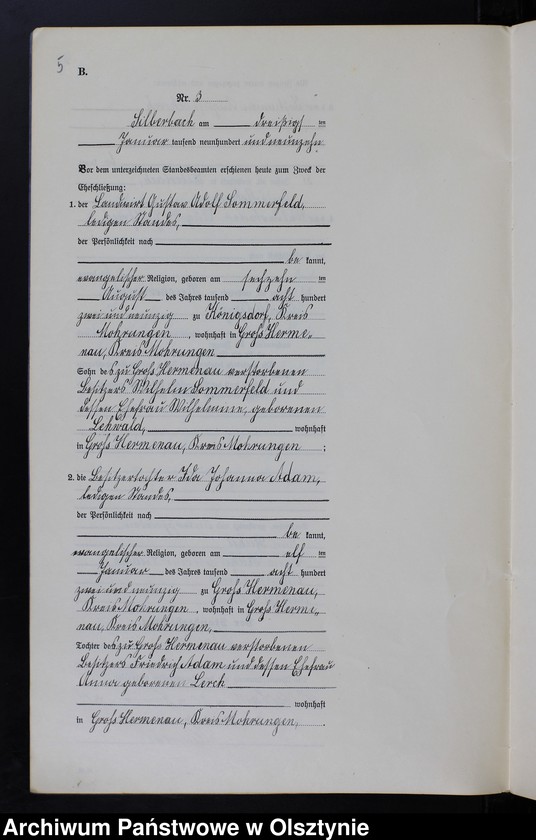 5
B.
Nr. 3
Silberbach am dreißigs ten
Januar tausend neunhundert und neunzehn
Vor dem unterzeichneten Standesbeamten erschienen heute zum Zweck der
Eheschließung:
1. der Landwirt Gustav Adolf Sommerfeld,
ledigen Standes,
der Persönlichkeit nach
be kannt,
evangelischer Religion, geboren am sechzehn ten
August des Jahres tausend acht hundert
zwei und neunzig zu Königsdorf, Kreis
Mohrungen, wohnhaft in Groß Herme-
nau, Kreis Mohrungen
Sohn des zu Groß Hermenau verstorbenen
Besitzers Wilhelm Sommerfeld und
dessen Ehefrau Wilhelmine, geborenen
Lehwald, wohnhaft
in Groß Hermenau, Kreis Mohrungen ;
2. die Besitzertochter Ida Johanna Adam,
ledigen Standes,
der Persönlichkeit nach
be kannt,
evangelischer Religion, geboren am elf ten
Januar des Jahres tausend acht hundert
zwei und neunzig zu Groß Hermenau,
Kreis Mohrungen, wohnhaft in Groß Herme-
nau, Kreis Mohrungen,
Tochter des zu Groß Hermenau verstorbenen
Besitzers Friedrich Adam und dessen Ehefrau
Anna geborenen Lerch
wohnhaft
in Groß Hermenau, Kreis Mohrungen, .
Archiwum Państwowe w Olsztynie